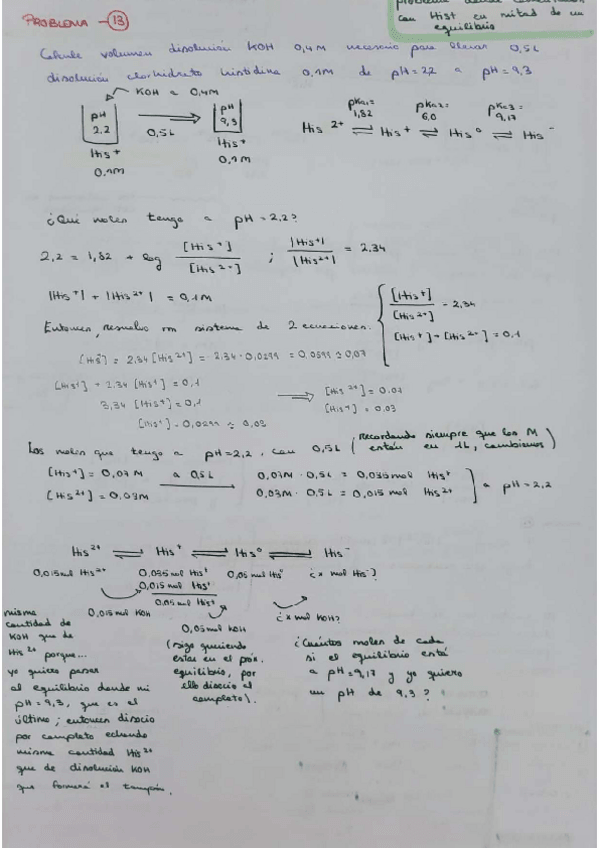 PROBLEMA - 13
con Hist en mitad de un
equilibrio
Calcule volumen disolución KOH 0,4M necesario para llevar 0,5L
disolución clorhidrato histidina 0,1M de pH=2,2 a pH=9,3
KOH ≈ 0,4M
pH
2,2
0,5L
pH
9,3
His+
0,1M
His+
0,1M
pKa1=
1,82
pKa2=
6,0
pKa3=
9,17
His 2+ ⇌ His+ ⇌ His0 ⇌ His-
¿Qué moles tengo a pH = 2,2?
2,2 = 1,82 + log [His+]/[His2+] ; |His+|/|His2+| = 2,34
|His+| + |His2+| = 0,1M
[His+]/[His2+] = 2,34
[His+] + [His2+] = 0,1
Entonces, resuelvo un sistema de 2 ecuaciones.
[His+] = 2,34 [His2+] = 2,34 · 0,0299 = 0,0699 ≈ 0,07
[His+] + 2,34 [His+] = 0,1
3,34 [His+] = 0,1
[His+] = 0,0299 ≈ 0,03
[His2+] = 0,07
[His+] = 0,03
Los moles que tengo a pH=2,2, con 0,5L (recordando siempre que los M
están en 1L, cambiamos)
[His+] = 0,07 M a 0,5L 0,07M · 0,5L = 0,035 mol His+
[His2+] = 0,03M 0,03M · 0,5L = 0,015 mol His2+
a pH=2,2
His2+ ⇌ His+ ⇌ His0 ⇌ His-
0,015mol His2+ 0,035mol His+ 0,05mol His0 ¿x mol His-?
0,015mol His+
0,05mol His+
0,015mol KOH
0,05mol KOH
¿x mol KOH?
misma
cantidad de
KOH que de
His2+ porque...
yo quiero pasar
al equilibrio donde mi
pH=9,3, que es el
último; entonces disocio
por completo echando
misma cantidad His2+
que de disolución KOH
que formará el tampón.
(sigo queriendo
estar en el próx.
equilibrio, por
ello disocio al
completo).
¿Cuántos moles de cada
si el equilibrio está
a pH=9,17 y yo quiero
un pH de 9,3?